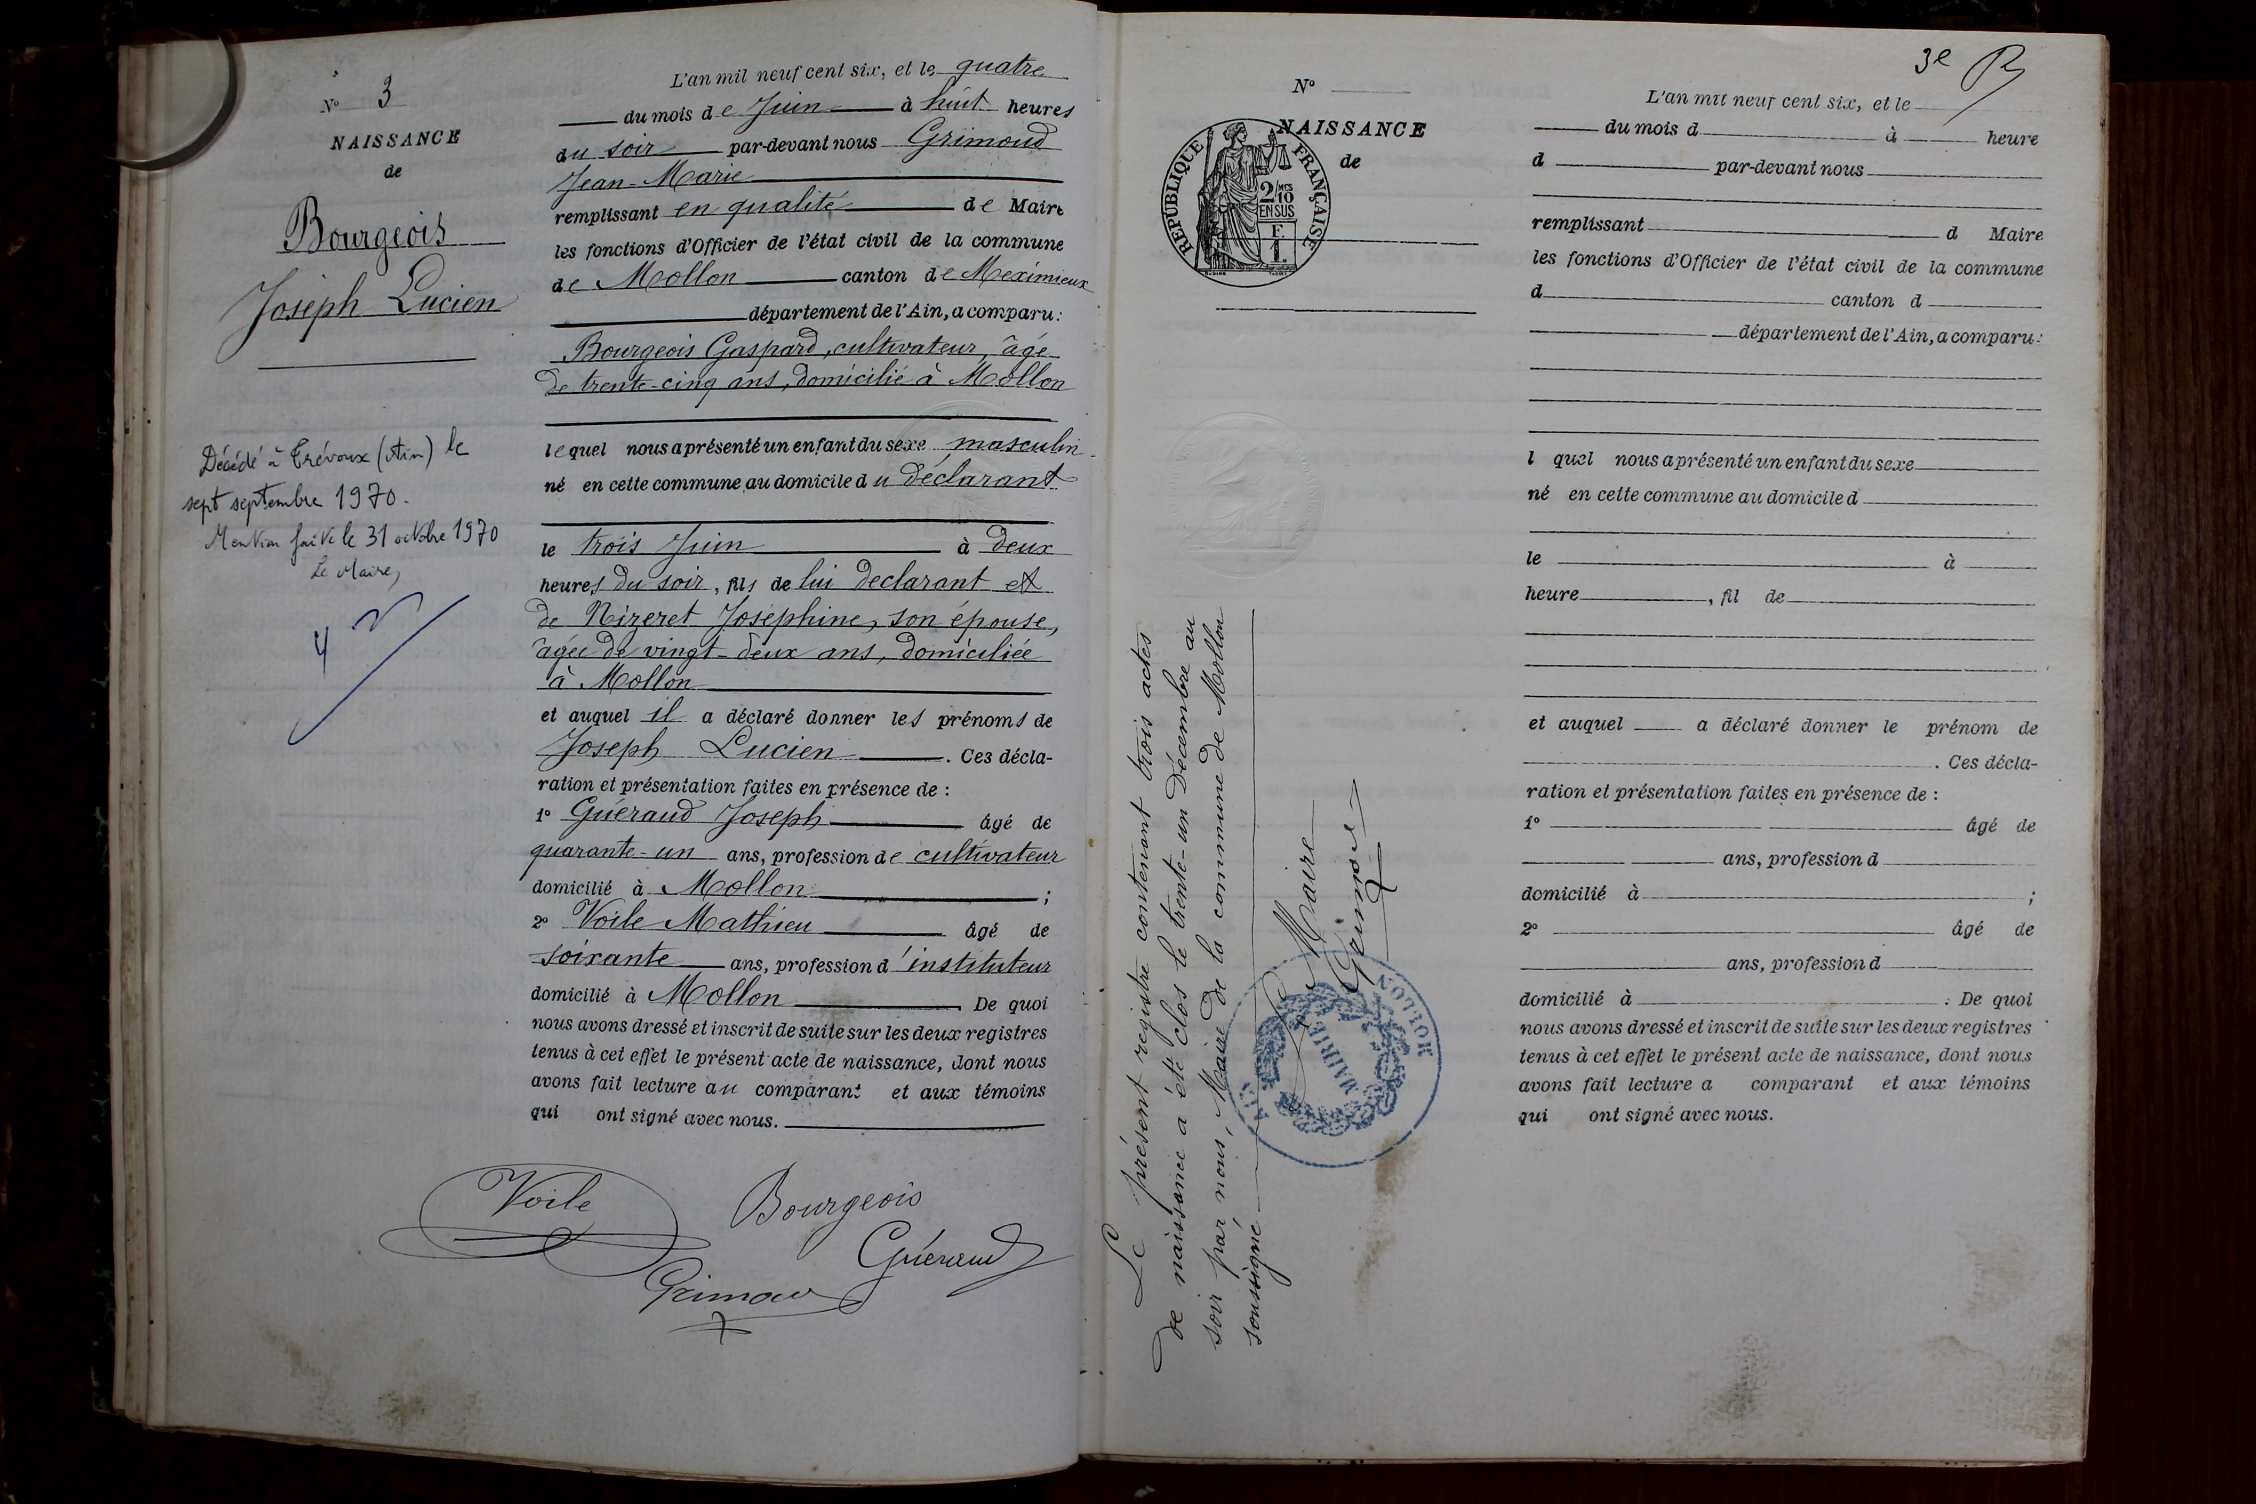 N° 3
NAISSANCE
de
Bourgeois
Joseph Lucien
Décédé à Trévoux (Ain) le
sept septembre 1970.
Mention faite le 31 octobre 1970
Le Maire,
L'an mil neuf cent six, et le quatre
du mois de Juin à huit heures
du soir par-devant nous Grimoud
Jean-Marie
remplissant en qualité de Maire
les fonctions d'Officier de l'état civil de la commune
de Mollon canton de Meximieux
département de l'Ain, a comparu:
Bourgeois Gaspard, cultivateur, âgé
de trente-cinq ans, domicilié à Mollon
lequel nous a présenté un enfant du sexe masculin
né en cette commune au domicile du déclarant
le trois Juin à deux
heures du soir, fils de lui declarant et
de Nizeret Joséphine, son épouse,
âgée de vingt-deux ans, domiciliée
à Mollon
et auquel il a déclaré donner les prénoms de
Joseph Lucien. Ces décla-
ration et présentation faites en présence de :
1° Guéraud Joseph âgé de
quarante-un ans, profession de cultivateur
domicilié à Mollon ;
2° Voile Mathieu âgé de
soixante ans, profession d'instituteur
domicilié à Mollon. De quoi
nous avons dressé et inscrit de suite sur les deux registres
tenus à cet effet le présent acte de naissance, dont nous
avons fait lecture au comparant et aux témoins
qui ont signé avec nous.
Voile Bourgeois
Guéraud
Grimoud
3e
N°
NAISSANCE
de
RÉPUBLIQUE FRANÇAISE
2/10 MES
EN SUS
F.
1.
Le présent registre contenant trois actes
de naissance a été clos le trente-un Décembre au
soir par nous, Maire de la commune de Mollon
soussigné
Le Maire
Grimoud
MAIRIE
MOLLON
AIN
L'an mil neuf cent six, et le
du mois d à heure
d par-devant nous
remplissant d Maire
les fonctions d'Officier de l'état civil de la commune
d canton d
département de l'Ain, a comparu:
l quel nous a présenté un enfant du sexe
né en cette commune au domicile d
le à
heure , fil de
et auquel a déclaré donner le prénom de
. Ces décla-
ration et présentation faites en présence de :
1° âgé de
ans, profession d
domicilié à ;
2° âgé de
ans, profession d
domicilié à . De quoi
nous avons dressé et inscrit de suite sur les deux registres
tenus à cet effet le présent acte de naissance, dont nous
avons fait lecture a comparant et aux témoins
qui ont signé avec nous.